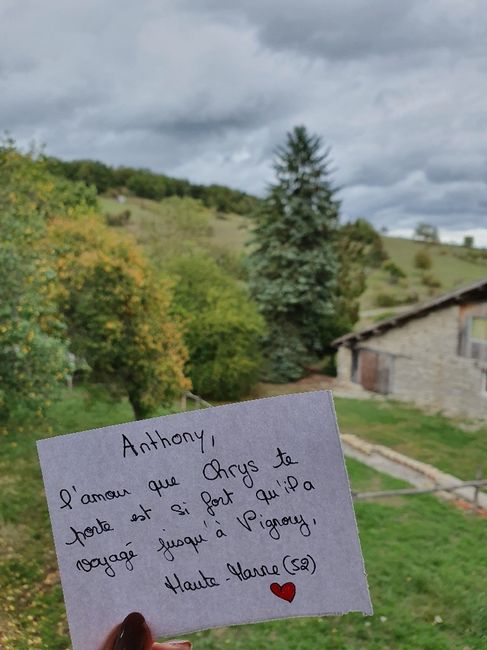 Anthony,
l'amour que Chrys te
porte est si fort qu'il a
voyagé jusqu'à Vignory,
Haute-Marne (52)